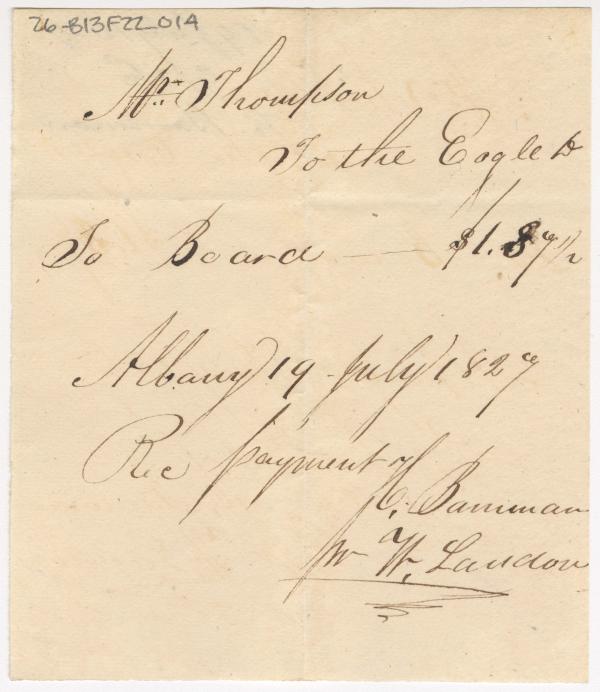 26-B13F22_014
Mr. Thompson
To the Eagle Dr
To Board — $1.87 1/2
Albany 19 July 1827
Rec payment
H. Bamman
pr W. Landon